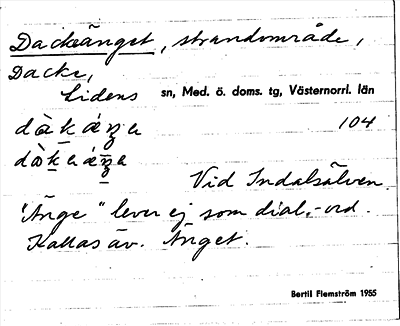 Dackeänget, strandområde,
Dacke,
Lidens sn, Med. ö. doms. tg, Västernorrl. län
104
Vid Indalsälven.
"Änge" lever ej som dial.-ord.
Kallas äv. Änget.
Bertil Flemström 1955